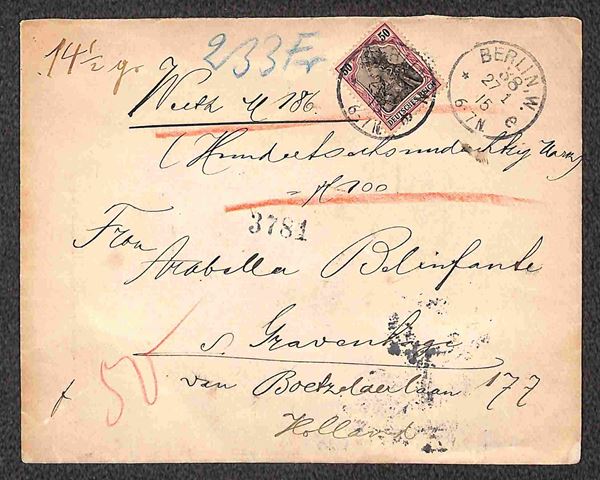 14½ gr
233 Fr
50 50
DEUTSCHES REICH
BERLIN. W.
38
27 1
15
6-7N. e
Wert M 186.
(Hundertsechsundachtzig Mark)
= M 100
3781
Frau
Arabella Belinfante
s. Gravenhage
van Boetzelaerlaan 177
Holland
50